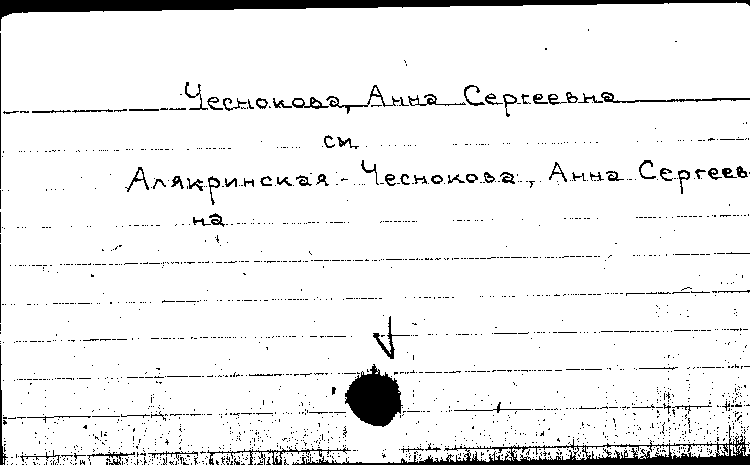 Чеснокова, Анна Сергеевна
см.
Алякринская - Чеснокова, Анна Сергеев-
на